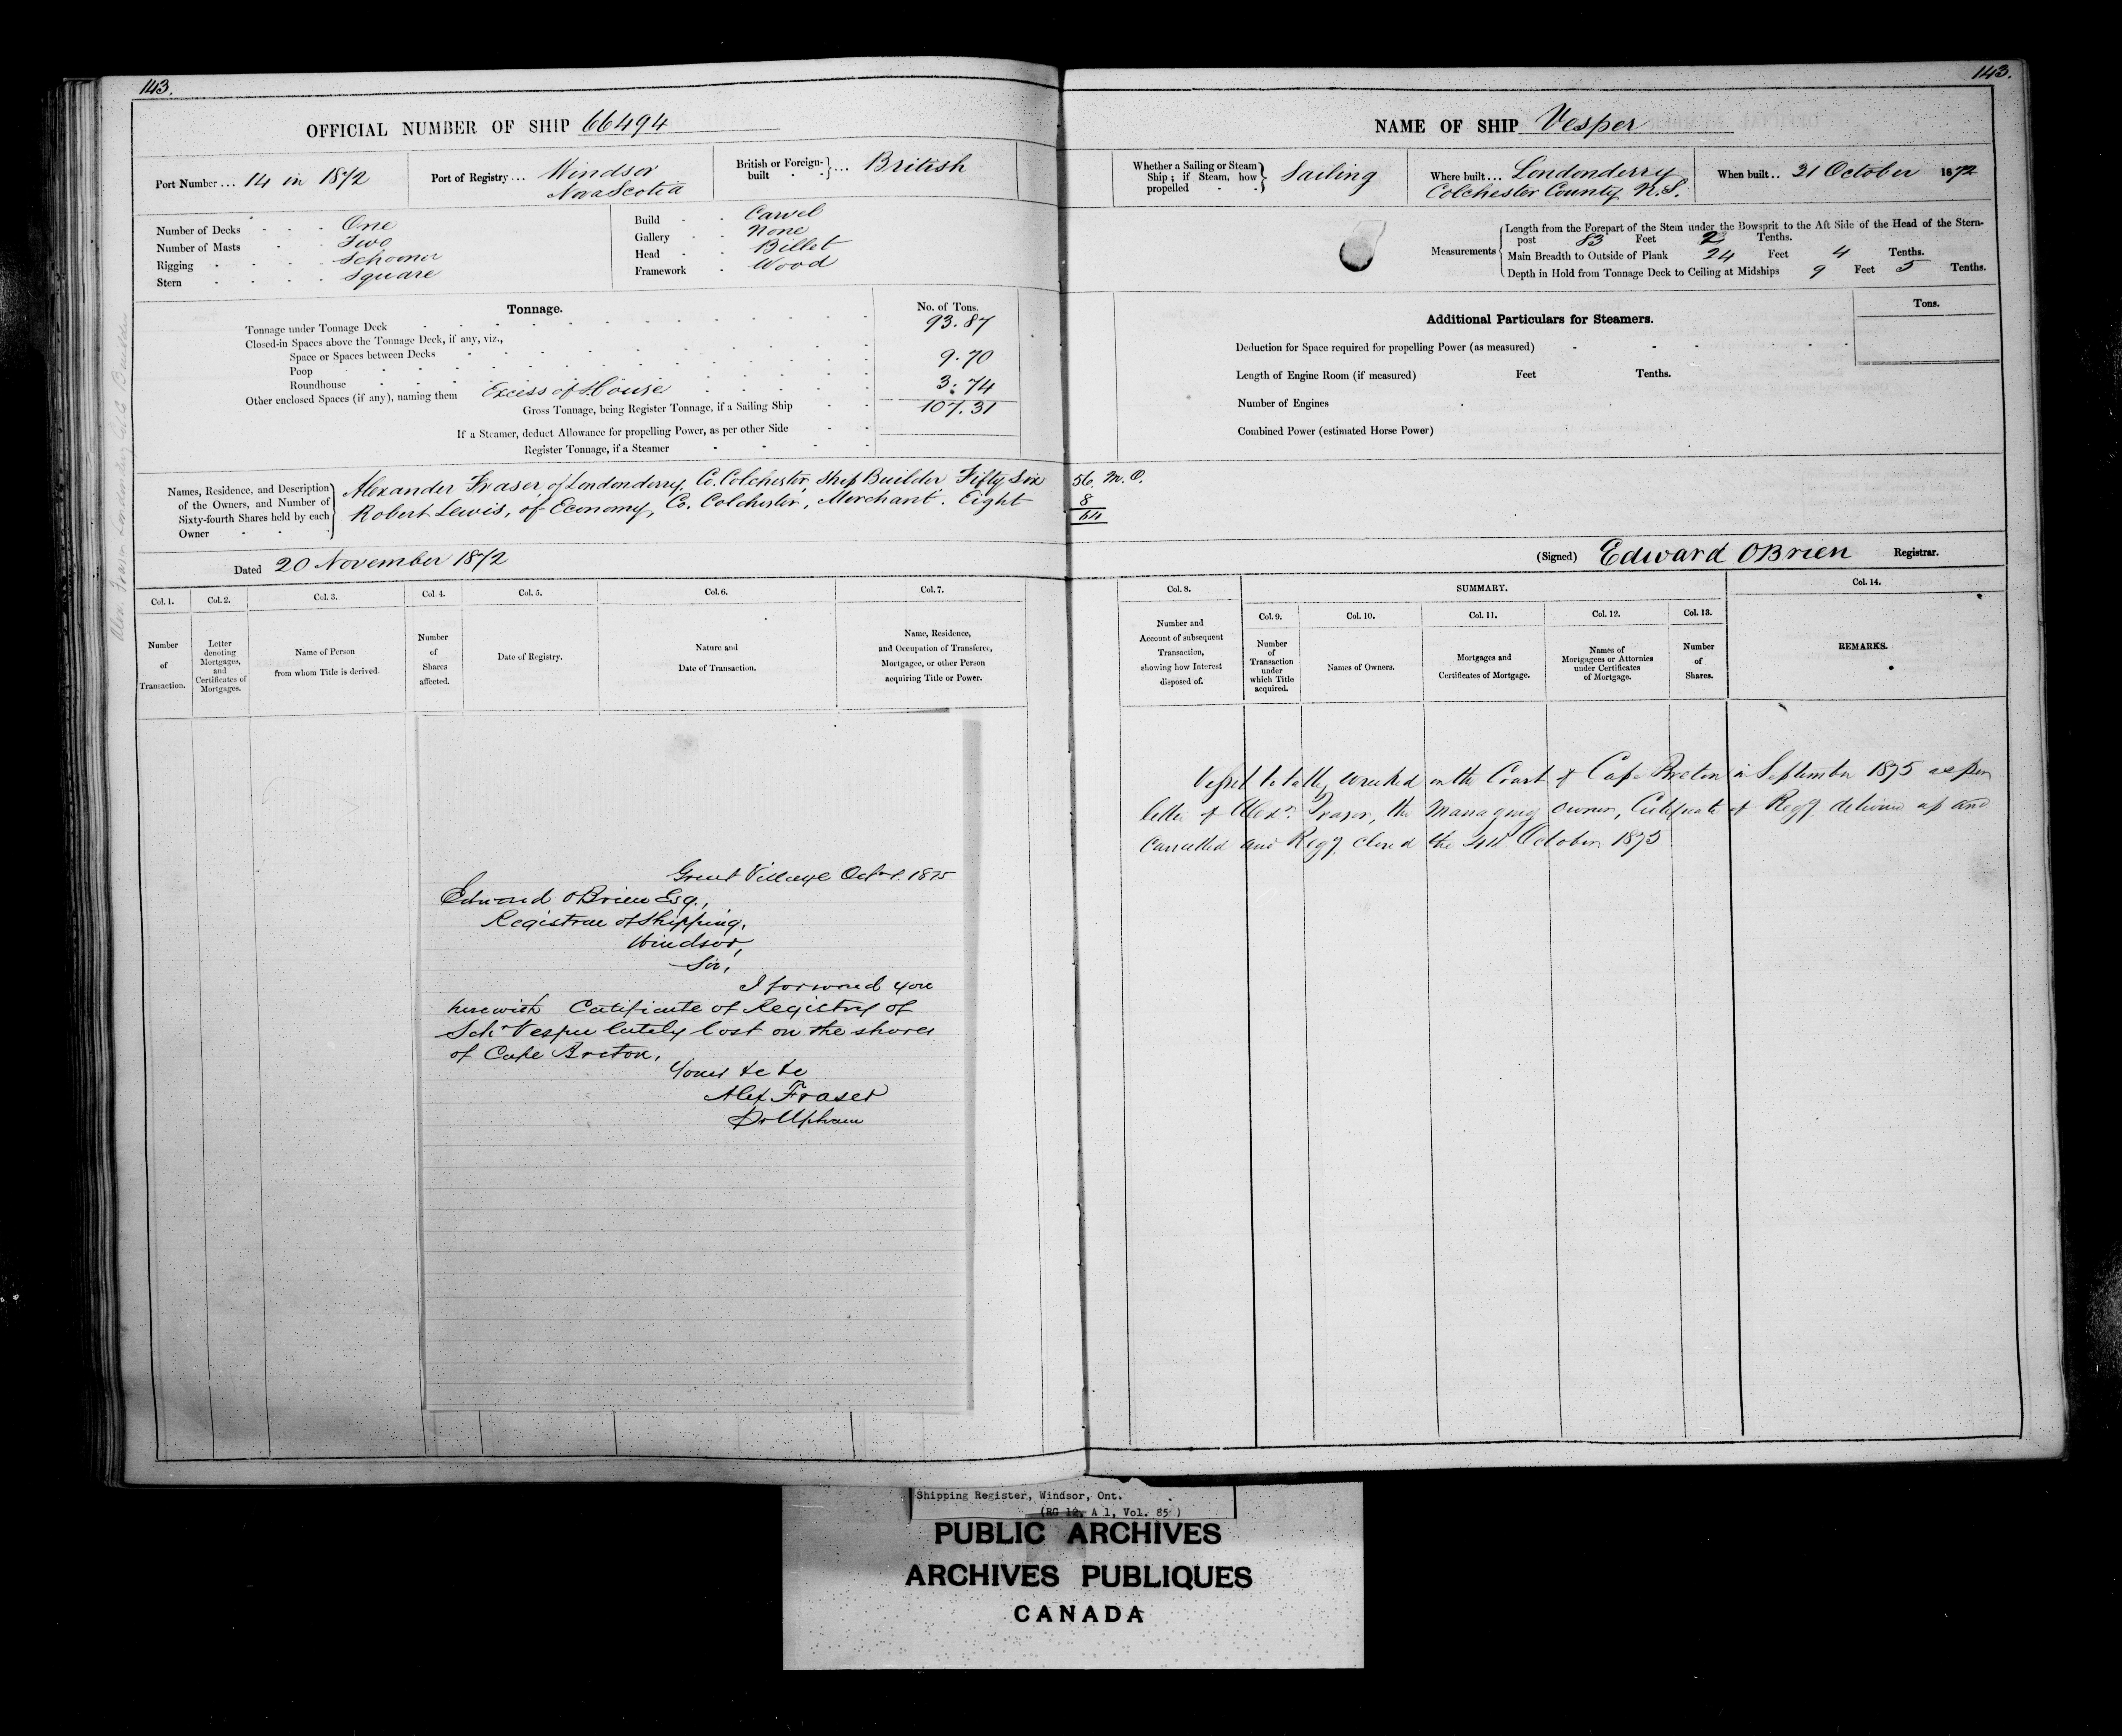 143.
OFFICIAL NUMBER OF SHIP 66494
Port Number ... 14 in 1872
Port of Registry ... Windsor
Nova Scotia
British or Foreign-built ... British
Number of Decks One
Number of Masts Two
Rigging Schooner
Stern Square
Build Carvel
Gallery None
Head Billet
Framework Wood
Tonnage.
No. of Tons.
Tonnage under Tonnage Deck 93.87
Closed-in Spaces above the Tonnage Deck, if any, viz.,
Space or Spaces between Decks
Poop 9.70
Roundhouse
Other enclosed Spaces (if any), naming them Excess of House 3.74
Gross Tonnage, being Register Tonnage, if a Sailing Ship 107.31
If a Steamer, deduct Allowance for propelling Power, as per other Side
Register Tonnage, if a Steamer
Names, Residence, and Description
of the Owners, and Number of
Sixty-fourth Shares held by each
Owner
Alexander Fraser, of Londonderry, Co. Colchester, Ship Builder Fifty Six
Robert Lewis, of Economy, Co. Colchester, Merchant. Eight
Dated 20 November 1872
Col. 1.
Number
of
Transaction.
Col. 2.
Letter
denoting
Mortgages,
and
Certificates of
Mortgages.
Col. 3.
Name of Person
from whom Title is derived.
Col. 4.
Number
of
Shares
affected.
Col. 5.
Date of Registry.
Col. 6.
Nature and
Date of Transaction.
Col. 7.
Name, Residence,
and Occupation of Transferee,
Mortgagee, or other Person
acquiring Title or Power.
Great Village Oct 1. 1875
Edward OBrien Esq.,
Registrar of Shipping,
Windsor,
Sir,
I forward you
herewith Certificate of Registry of
Schr Vesper lately lost on the shores
of Cape Breton.
Yours &c &c
Alex Fraser
Upham
143.
NAME OF SHIP Vesper
Whether a Sailing or Steam
Ship; if Steam, how
propelled
Sailing
Where built ... Londonderry
Colchester County N.S.
When built .. 31 October 1872
Measurements
Length from the Forepart of the Stem under the Bowsprit to the Aft Side of the Head of the Stern-
post 83 Feet Tenths.
Main Breadth to Outside of Plank 24 Feet 4 Tenths.
Depth in Hold from Tonnage Deck to Ceiling at Midships 9 Feet 5 Tenths.
Additional Particulars for Steamers.
Tons.
Deduction for Space required for propelling Power (as measured)
Length of Engine Room (if measured) Feet Tenths.
Number of Engines
Combined Power (estimated Horse Power)
56. M.O.
8
64
(Signed) Edward OBrien Registrar.
Col. 8.
Number and
Account of subsequent
Transaction,
showing how Interest
disposed of.
SUMMARY.
Col. 9.
Number
of
Transaction
under
which Title
acquired.
Col. 10.
Names of Owners.
Col. 11.
Mortgages and
Certificates of Mortgage.
Col. 12.
Names of
Mortgagees or Attornies
under Certificates
of Mortgage.
Col. 13.
Number
of
Shares.
Col. 14.
REMARKS.
Vessel totally wrecked on the Coast of Cape Breton in September 1875 as per
letter of Alexr. Fraser, the Managing owner, Certificate of Regy delivered up and
Cancelled and Regy closed the 4th October 1875
Shipping Register, Windsor, Ont.
(RG 12, A 1, Vol. 85)
PUBLIC ARCHIVES
ARCHIVES PUBLIQUES
CANADA